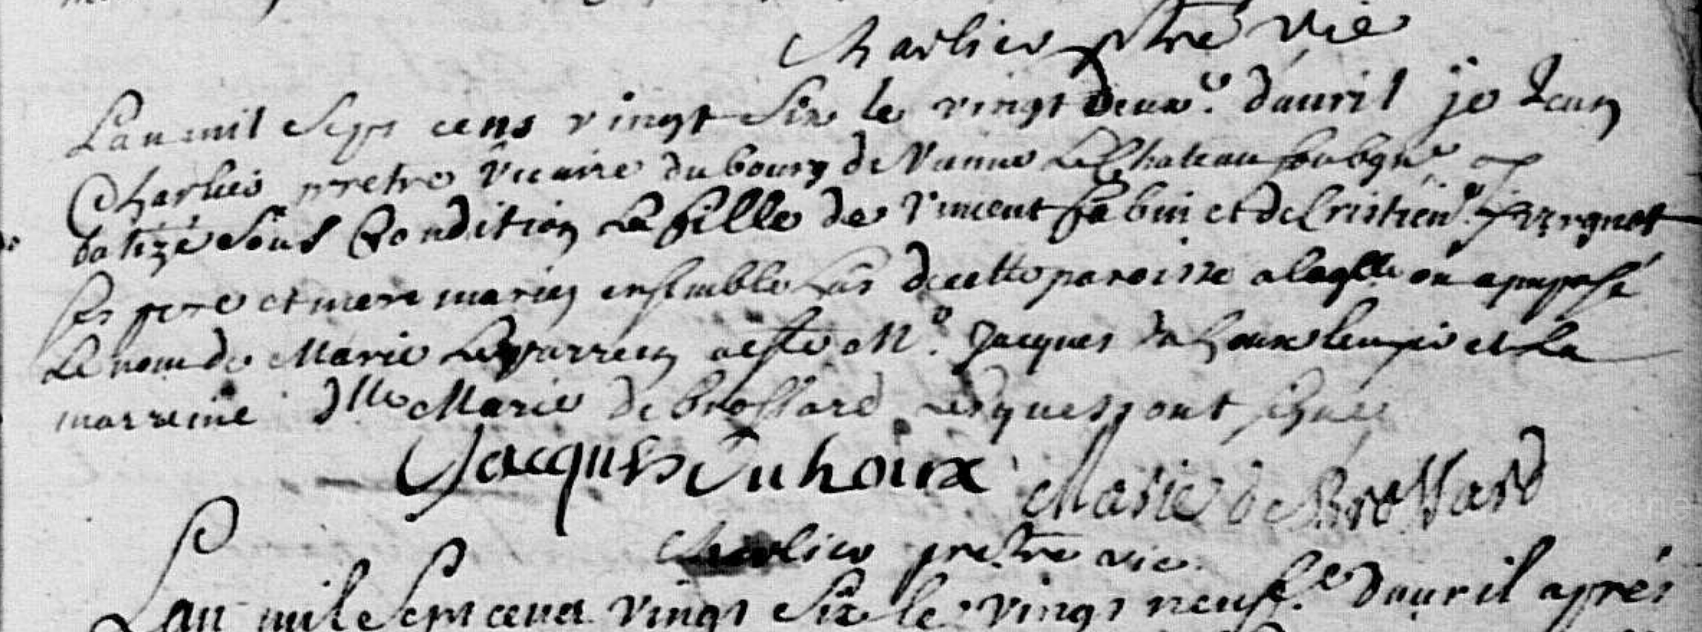 Charlier ptre vic
Lan mil sept cens vingt six le vingt deuxe. dauril je Jean
Charlier pretre vicaire du bourg de Vanne Le Chateau soubgne ay
batizé sous Condition la fille de Vincent et de
ses pere et mere mariez ensemble de cette paroisse a laqlle on a imposé
Le nom de Marie Le parrein a esté Mr. Jacques du houx et la
marreine dlle Marie de Brossard Lesquels ont signez
Jacques Duhoux Marie de Brossard
Charlier pretre vic.
Lan mil sept cens vingt six le vingt neufe. dauril aprés